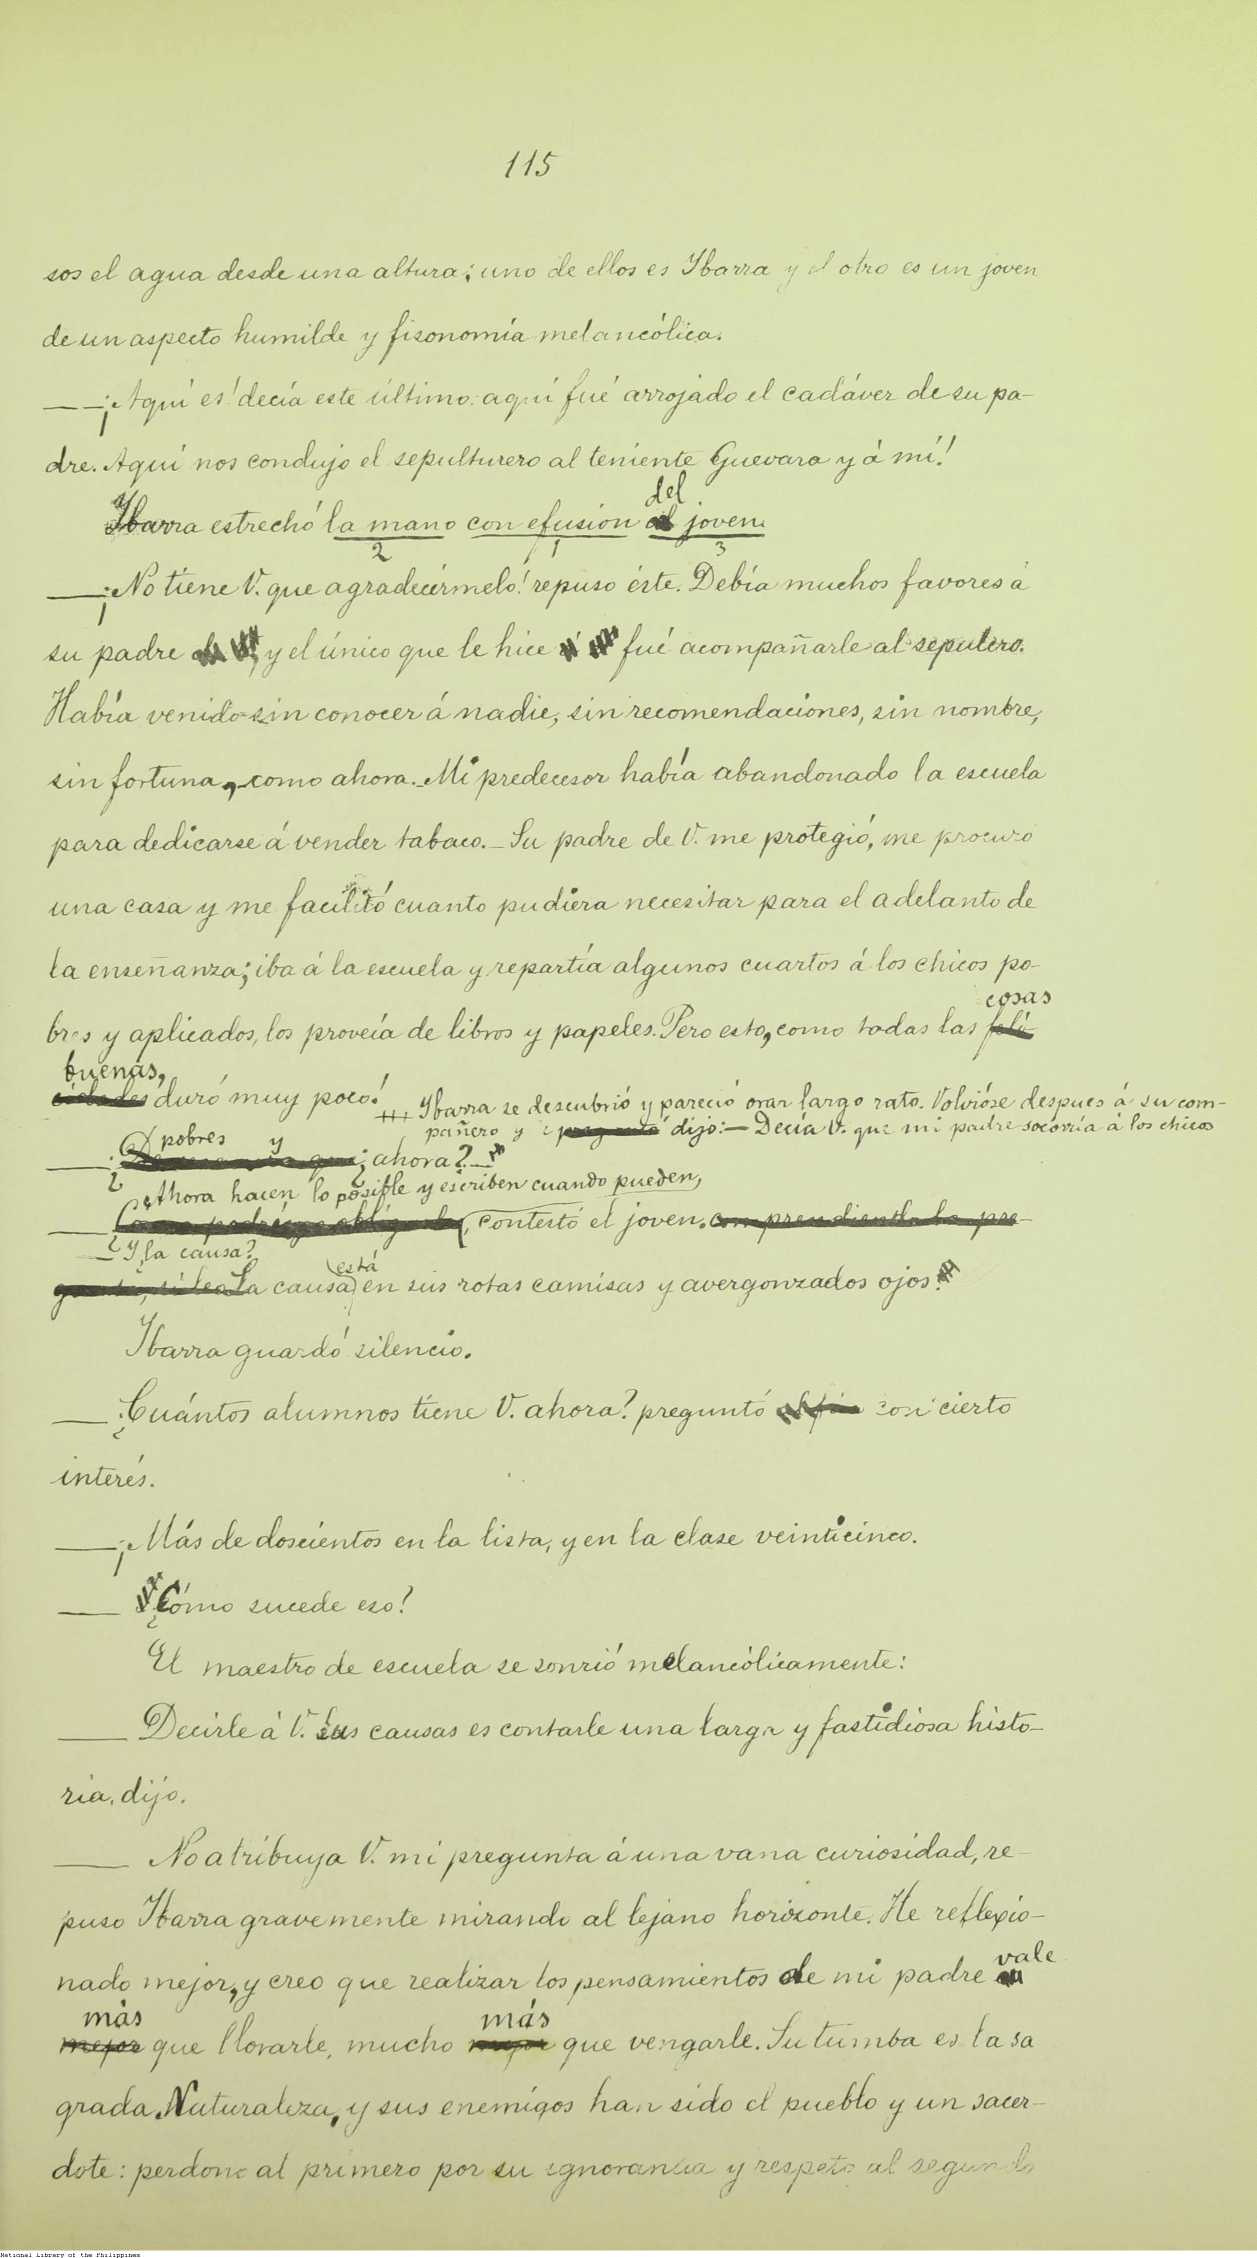 115
sos el agua desde una altura; uno de ellos es Ybarra y el otro es un joven
de un aspecto humilde y fisonomía melancólica.
—¡Aquí es! decía este último: aquí fué arrojado el cadáver de su pa-
dre. Aquí nos condujo el sepulturero al teniente Guevara y á mí!
del
Ybarra estrechó la mano con efusión joven.
2 1 3
—¡No tiene V. que agradecérmelo! repuso éste. Debía muchos favores á
su padre, y el único que le hice fué acompañarle al sepulcro.
Había venido sin conocer á nadie, sin recomendaciones, sin nombre,
sin fortuna, como ahora. Mi predecesor había abandonado la escuela
para dedicarse á vender tabaco.— Su padre de V. me protegió, me procuró
una casa y me facilitó cuanto pudiera necesitar para el adelanto de
la enseñanza; iba á la escuela y repartía algunos cuartos á los chicos po-
cosas
bres y aplicados, los proveía de libros y papeles. Pero esto, como todas las feli-
buenas,
cidades duró muy poco!
Ybarra se descubrió y pareció orar largo rato. Volvióse despues á su com-
pañero y preguntó dijo:— Decía V. que mi padre socorría á los chicos
pobres y
¿ahora?—
Ahora hacen lo posible y escriben cuando pueden,
contestó el joven. comprendiendo la pre-
—Y ¿la causa?
está
gunta, La causa en sus rotas camisas y avergonzados ojos.
Ybarra guardó silencio.
—¿Cuántos alumnos tiene V. ahora? preguntó al fin con cierto
interés.
—¡Más de doscientos en la lista, y en la clase veinticinco.
—¿Cómo sucede eso?
El maestro de escuela se sonrió melancólicamente:
—Decirle á V. las causas es contarle una larga y fastidiosa histo-
ria, dijo.
—No atribuya V. mi pregunta á una vana curiosidad, re-
puso Ybarra gravemente mirando al lejano horizonte. He reflexio-
vale
nado mejor, y creo que realizar los pensamientos de mi padre
más más
mejor que llorarle, mucho mejor que vengarle. Su tumba es la sa
grada Naturaleza, y sus enemigos han sido el pueblo y un sacer-
dote: perdono al primero por su ignorancia y respeto al segundo
National Library of the Philippines